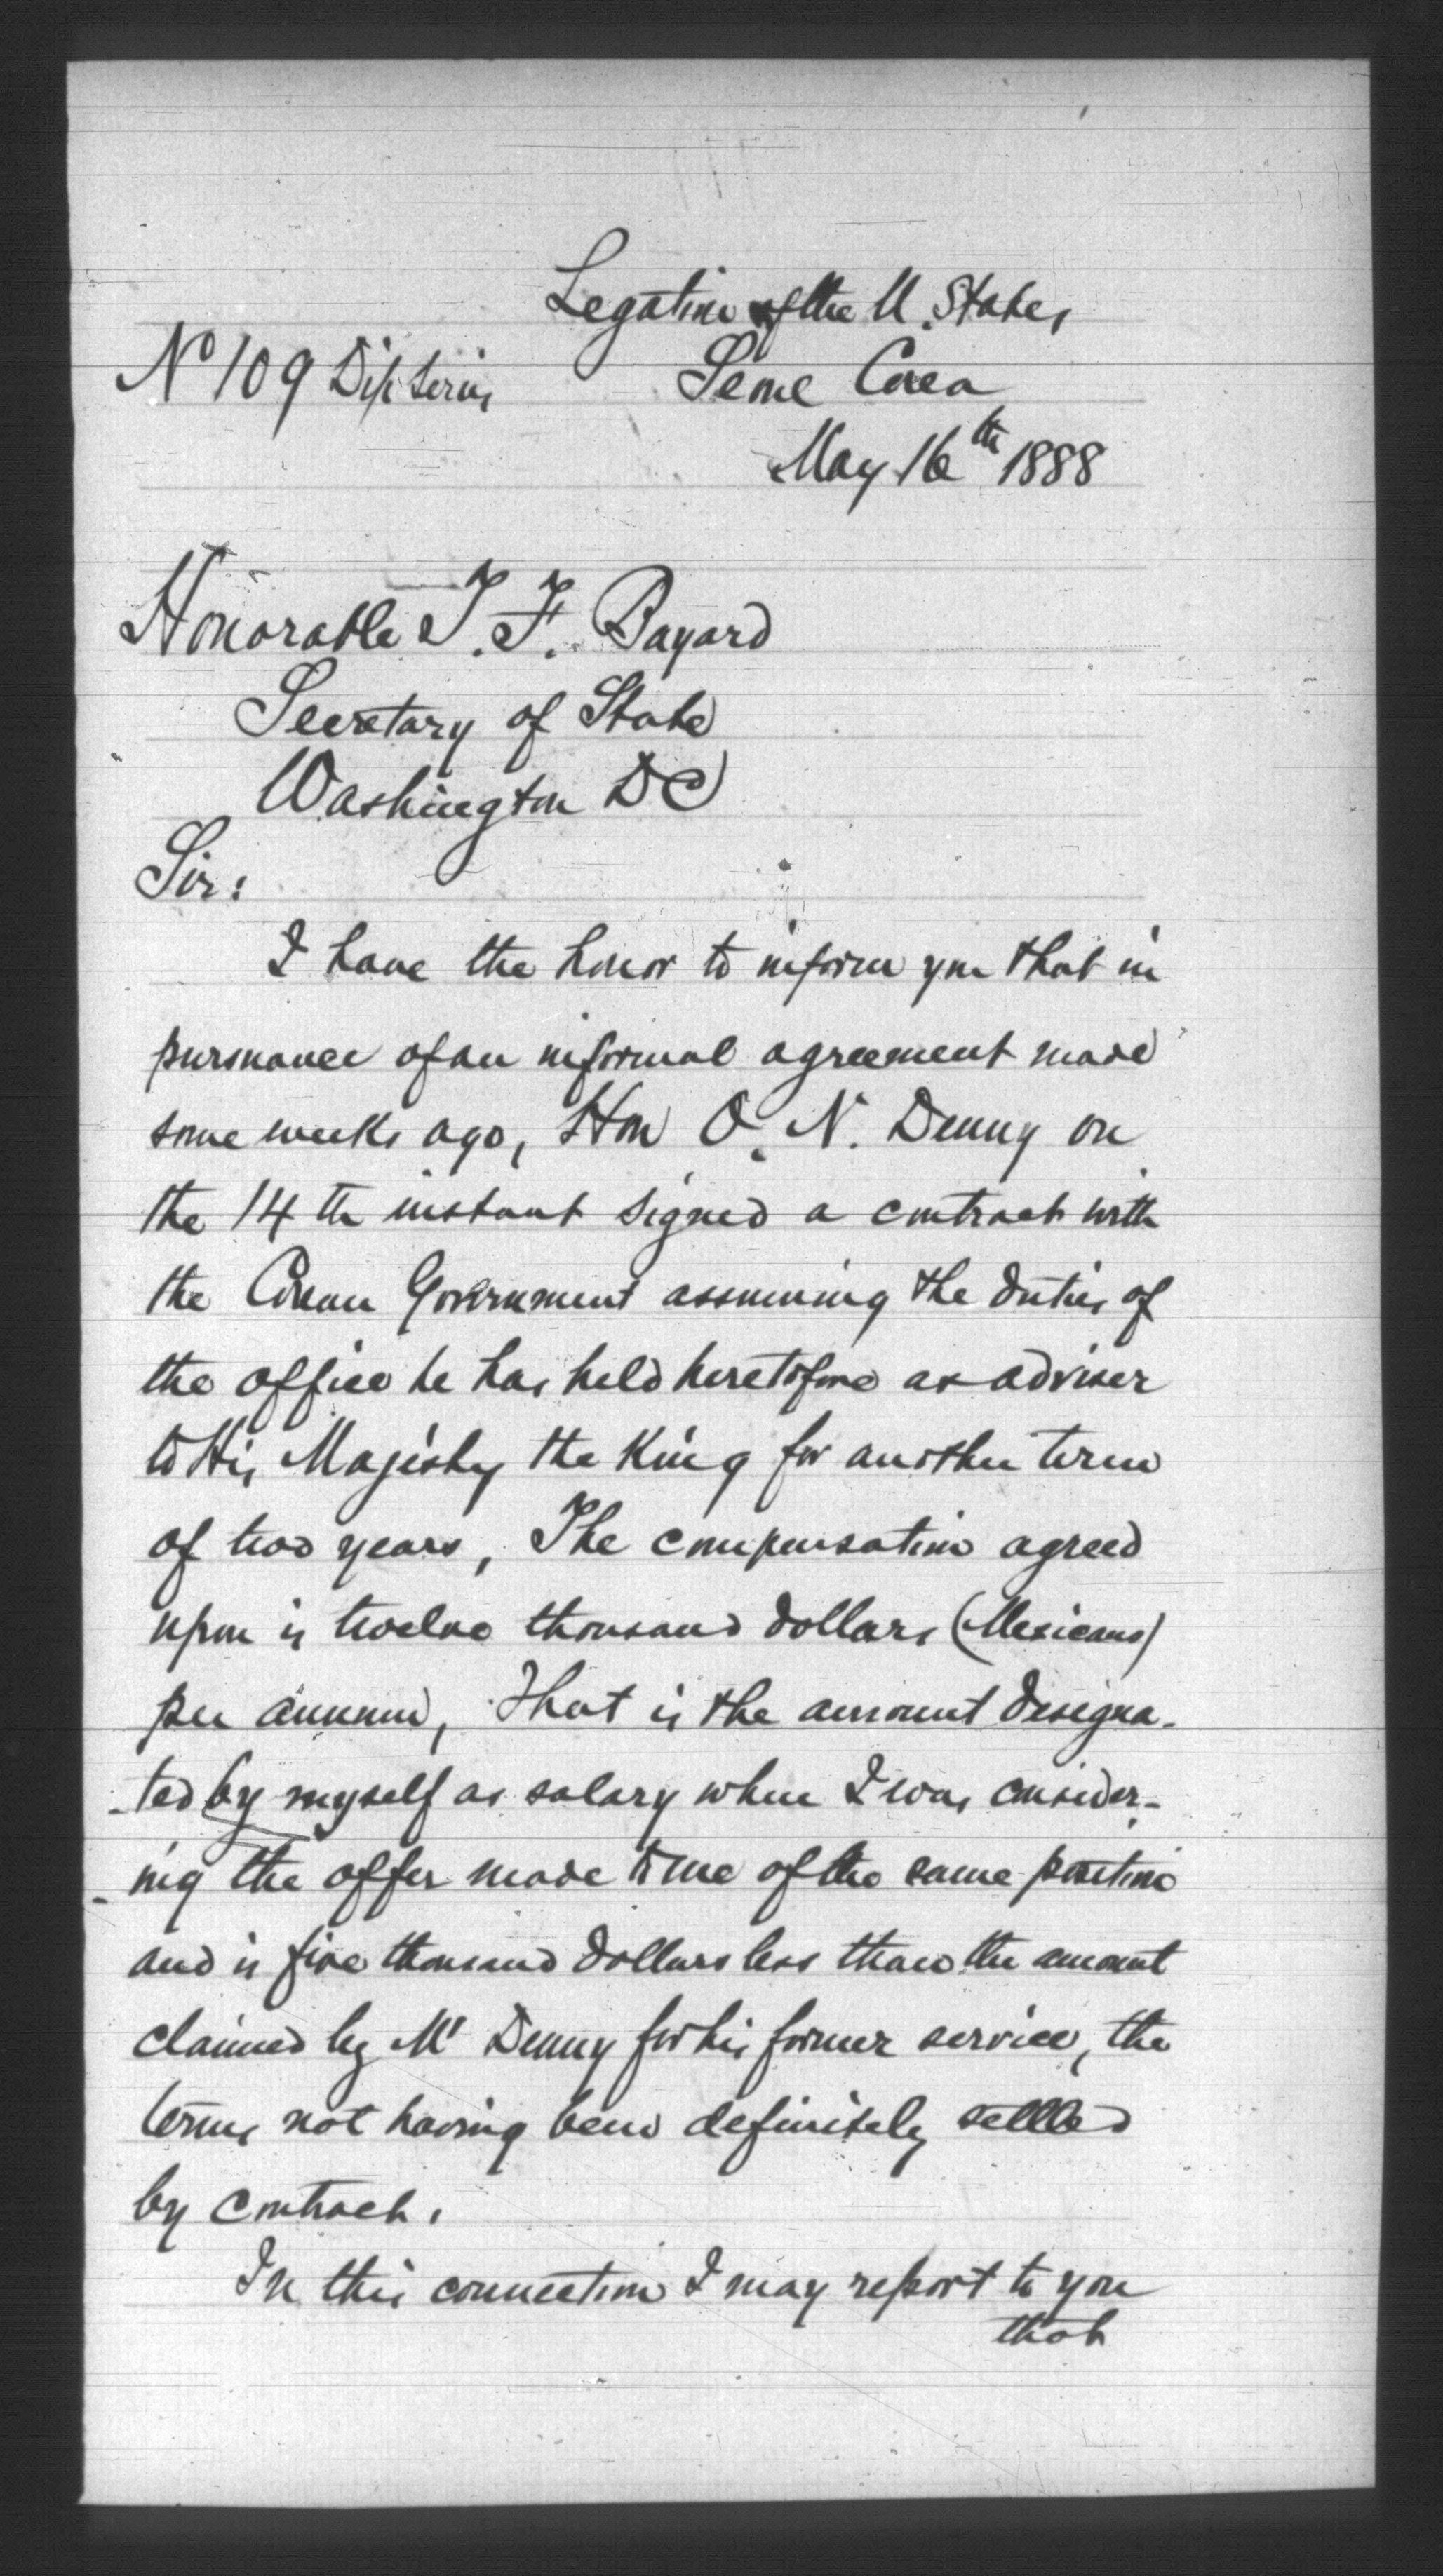 Legation of the U. States
No 109 Dip Series
Seoul Corea
May 16th 1888
Honorable T. F. Bayard
Secretary of State
Washington DC
Sir:
I have the honor to inform you that in
pursuance of an informal agreement made
some weeks ago, Hon O. N. Denny on
the 14th instant signed a contract with
the Corean Government assuming the duties of
the office he has held heretofore as adviser
to His Majesty the King for another term
of two years, The compensation agreed
upon is twelve thousand dollars (Mexicans)
per annum, That is the amount designa-
-ted by myself as salary when I was consider-
-ing the offer made to me of the same position
and is five thousand dollars less than the amount
claimed by Mr Denny for his former service, the
terms not having been definitely settled
by contract.
In this connection I may report to you
that